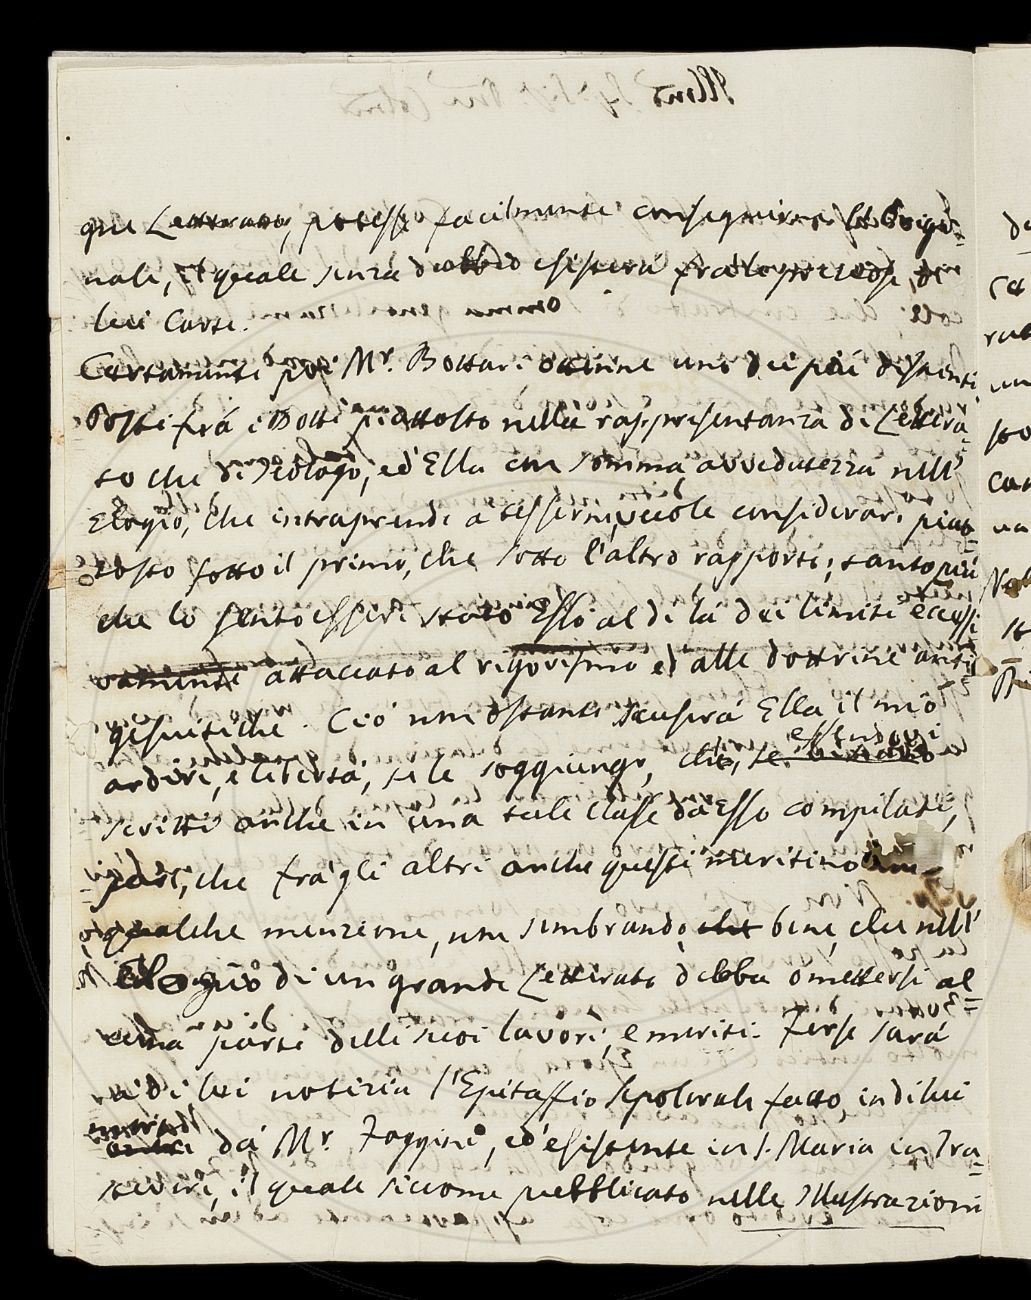 que Letterato, potesse facilmente conseguirne l'Origi=
nale, il quale senza dubbio esisterà fra le preziose di
lui Carte.
Certamente poi Mr. Bottari ottiene uno dei più distinti
Posti frà i Dotti piuttosto nella rappresentanza di Lettera=
to che di Teologo, ed Ella con somma avvedutezza nell'
Elogio, che intraprende a tesserne, vuole considerarsi piut=
tosto sotto il primo, che sotto l'altro rapporto; tanto più
che lo sento essere stato Esso al di là dei limiti eccessi
vamente attaccato al rigorismo ed alle dottrine anti
gesuitiche. Ciò non ostante scuserà Ella il mio
ardire, e libertà, se le soggiungo, che, se essendovi
scritti anche in una tale classe da Esso compilati,
pare, che frà gli altri anche questi meritino
qualche menzione, non sembrando che bene, che nell'
Elogio di un grande Letterato debba omettersi al=
cuna parte delle sue lavori, e meriti. Forse sarà
a di lei notizia l'Epitaffio sepolcrale fatto in di lui
da Mr. Foggini, ed esistente in S. Maria in Tra=
stevere, il quale siccome pubblicato nelle Illustrazioni